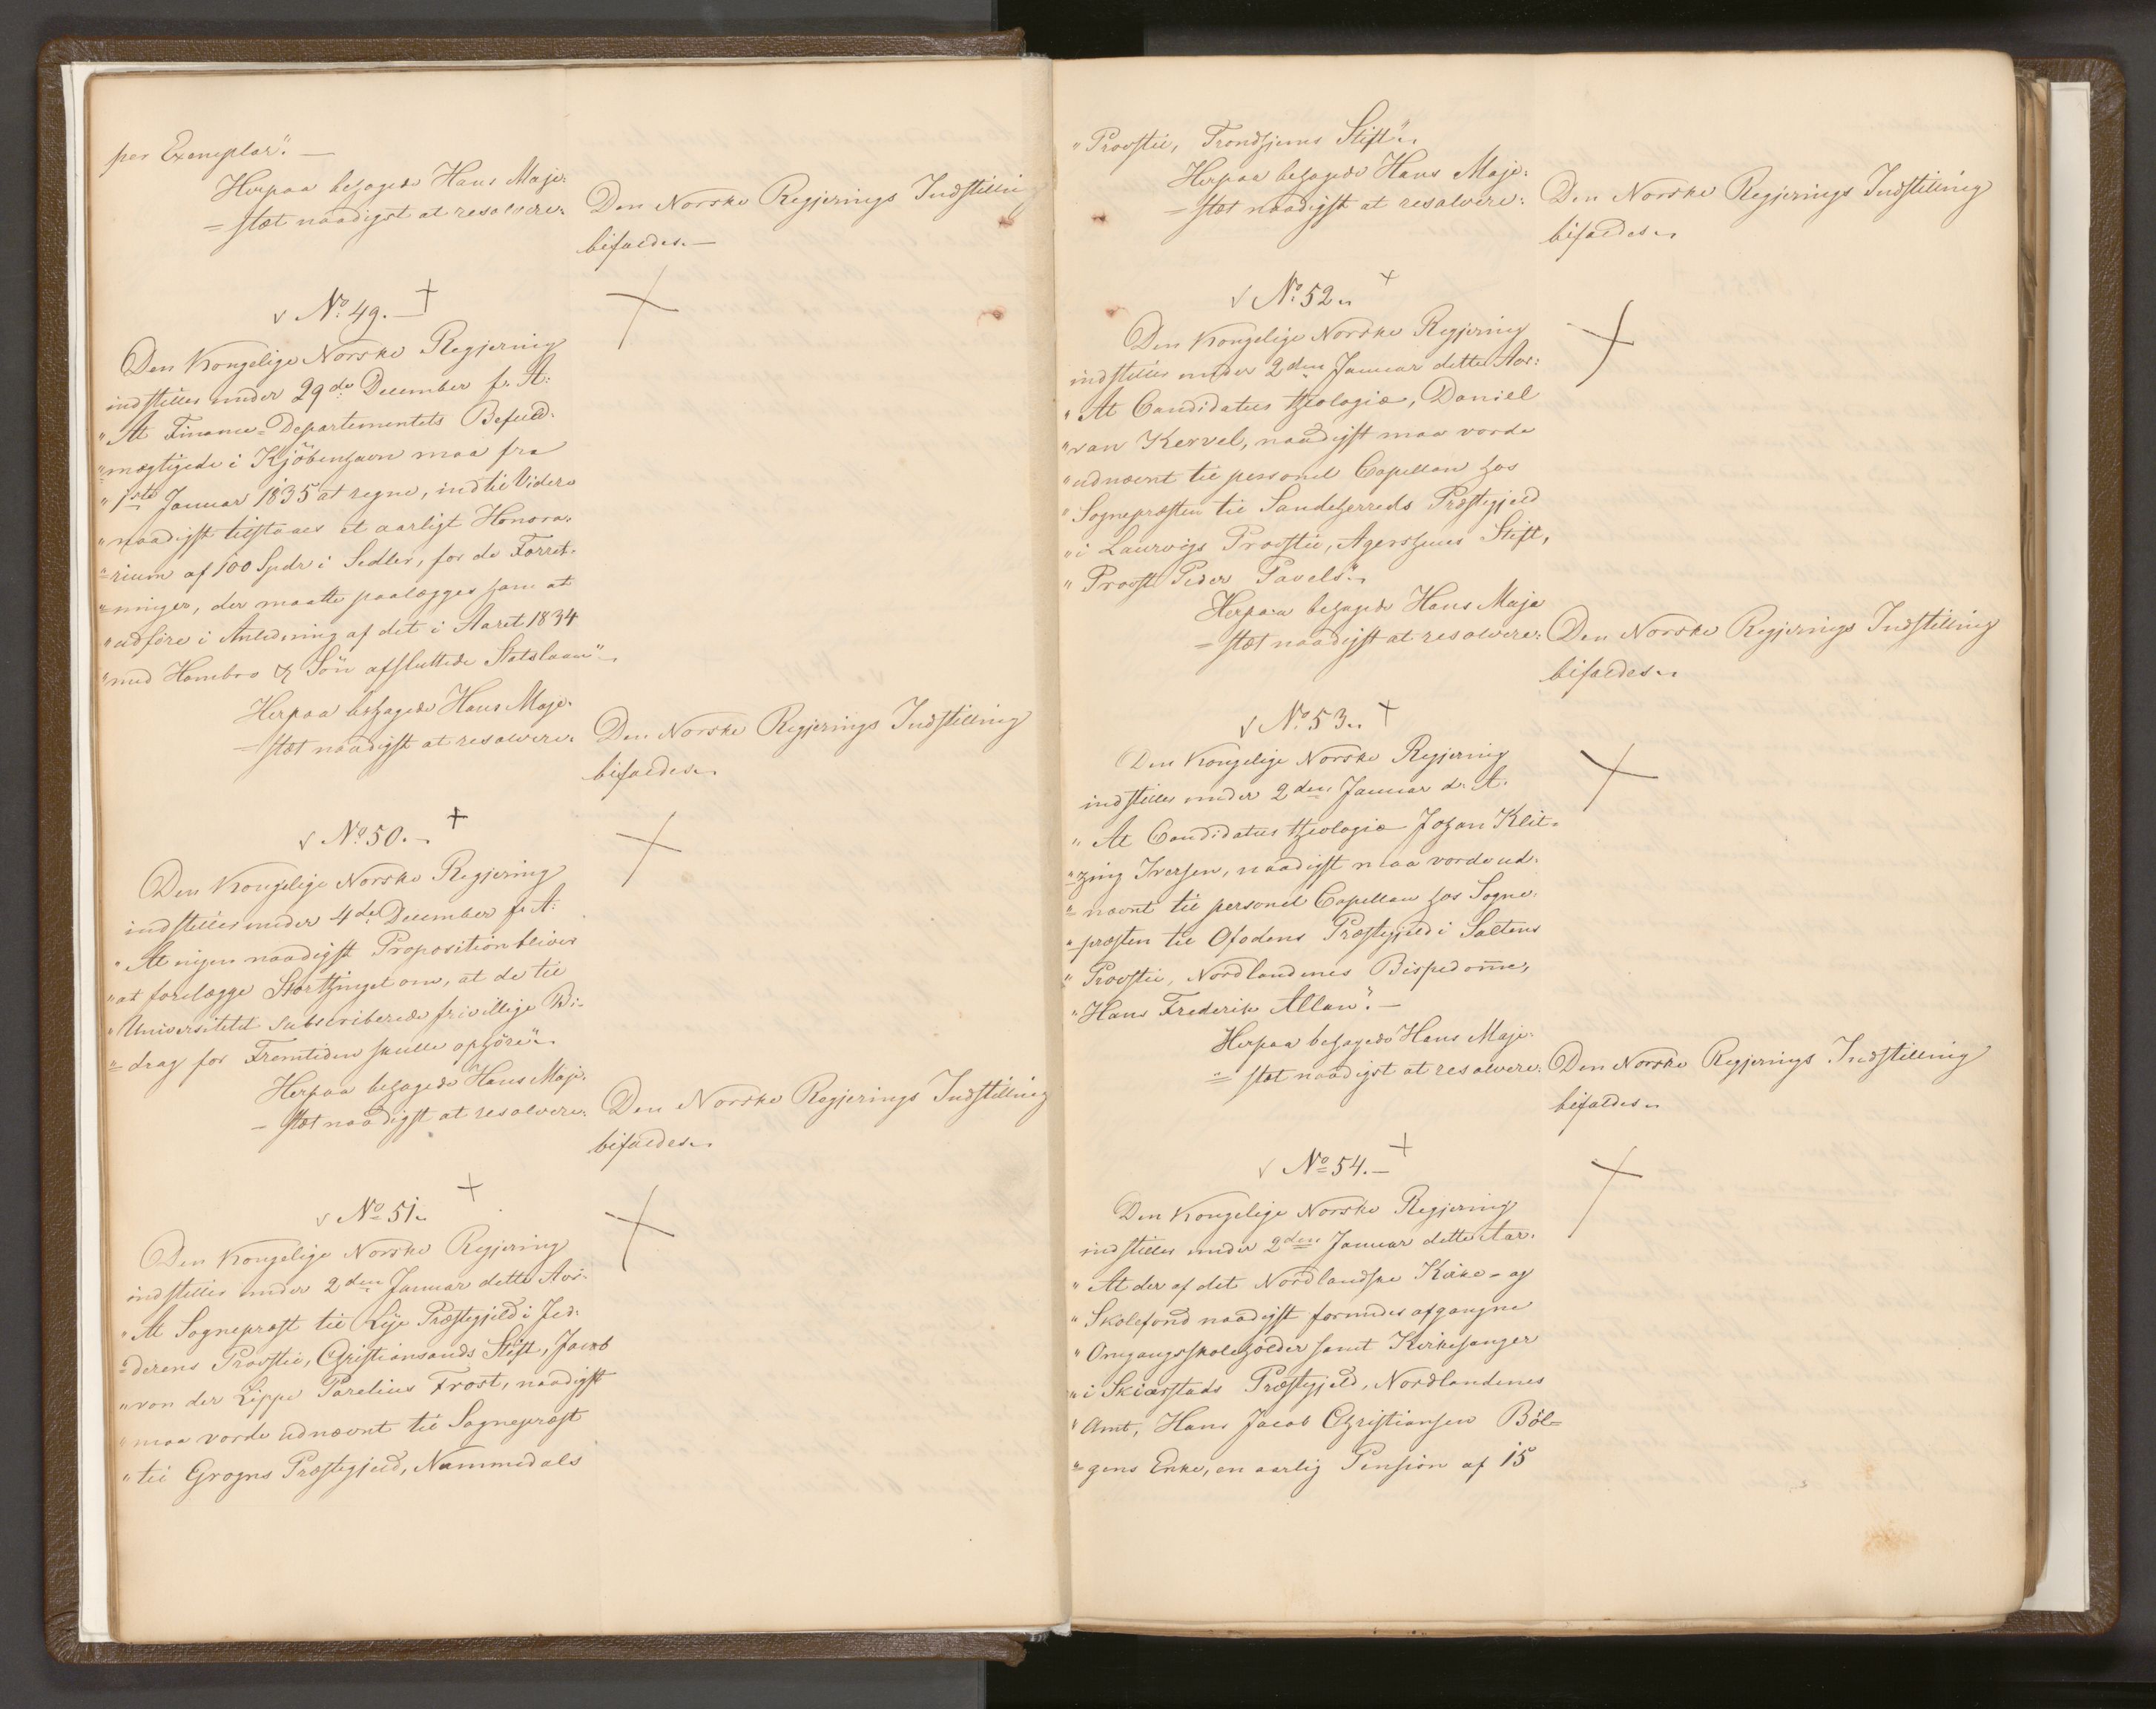 per Exemplar". —
Herpaa behagede Hans Maje-
= stæt naadigst at resolvere: Den Norske Regjerings Indstilling
bifaldes. —
No 49. —
Den Kongelige Norske Regjering
indstiller under 29de December f. A:
"At Finance-Departementets Befuld-
"=mægtigede i Kjöbenhavn maa fra
"1ste Januar 1835 at regne, indtil Videre
"naadigst tilstaaes et aarligt Honora-
"=rium af 100 Spdr i Sedler, for de Forret-
"=ninger, der maatte paalægges ham at
"udföre i Anledning af det i Aaret 1834
"med Hambro & Sön afsluttede Statslaan"
Herpaa behagede Hans Maje-
= stæt naadigst at resolvere: Den Norske Regjerings Indstilling
bifaldes.
No 50. —
Den Kongelige Norske Regjering
indstiller under 4de December f. A:
"At ingen naadigst Proposition bliver
"at forelægge Storthinget om, at de til
"Universitetet subscriberede frivillige Bi-
"=drag for Fremtiden skulle ophöre".
Herpaa behagede Hans Maje-
= stæt naadigst at resolvere: Den Norske Regjerings Indstilling
bifaldes.
No 51.
Den Kongelige Norske Regjering
indstiller under 2den Januar dette Aar:
"At Sognepræst til Lye Præstegjeld i Jed-
"=derens Provstie, Christiansands Stift, Jacob
"von der Lippe Parelius Frost, naadigst
"maa vorde udnævnt til Sognepræst
"til Grogns Præstegjeld, Nummedals
"Provstie, Trondhjems Stift".
Herpaa behagede Hans Maje-
= stæt naadigst at resolvere: Den Norske Regjerings Indstilling
bifaldes.
No 52.
Den Kongelige Norske Regjering
indstiller under 2den Januar dette Aar:
"At Candidatus theologiæ, Daniel
"van Kervel, naadigst maa vorde
"udnævnt til personel Capellan hos
"Sognepræsten til Sandeherreds Præstegjeld
"i Laurvigs Provstie, Agershuus Stift,
"Provst Peder Pavels".
Herpaa behagede Hans Maje
= stæt naadigst at resolvere: Den Norske Regjerings Indstilling
bifaldes.
No 53.
Den Kongelige Norske Regjering
indstiller under 2den Januar d. A.
"At Candidatus theologiæ Johan Klit-
"=zing Iversen, naadigst maa vorde ud-
"=nævnt til personel Capellan hos Sogne-
"=præsten til Ofodens Præstegjeld i Saltens
"Provstie, Nordlandenes Bispedom̅e,
"Hans Frederik Allan". —
Herpaa behagede Hans Maje-
= stæt naadigst at resolvere: Den Norske Regjerings Indstilling
bifaldes.
No 54. —
Den Kongelige Norske Regjering
indstiller under 2den Januar dette Aar.
"At der af det Nordlandske Kirke- og
"Skolefond naadigst forundes afgangne
"Omgangsskoleholder samt Kirkesanger
"i Skiærstads Præstegjeld, Nordlandenes
"Amt, Hans Jacob Christiansen Böl-
"=gens Enke, en aarlig Pension af 15